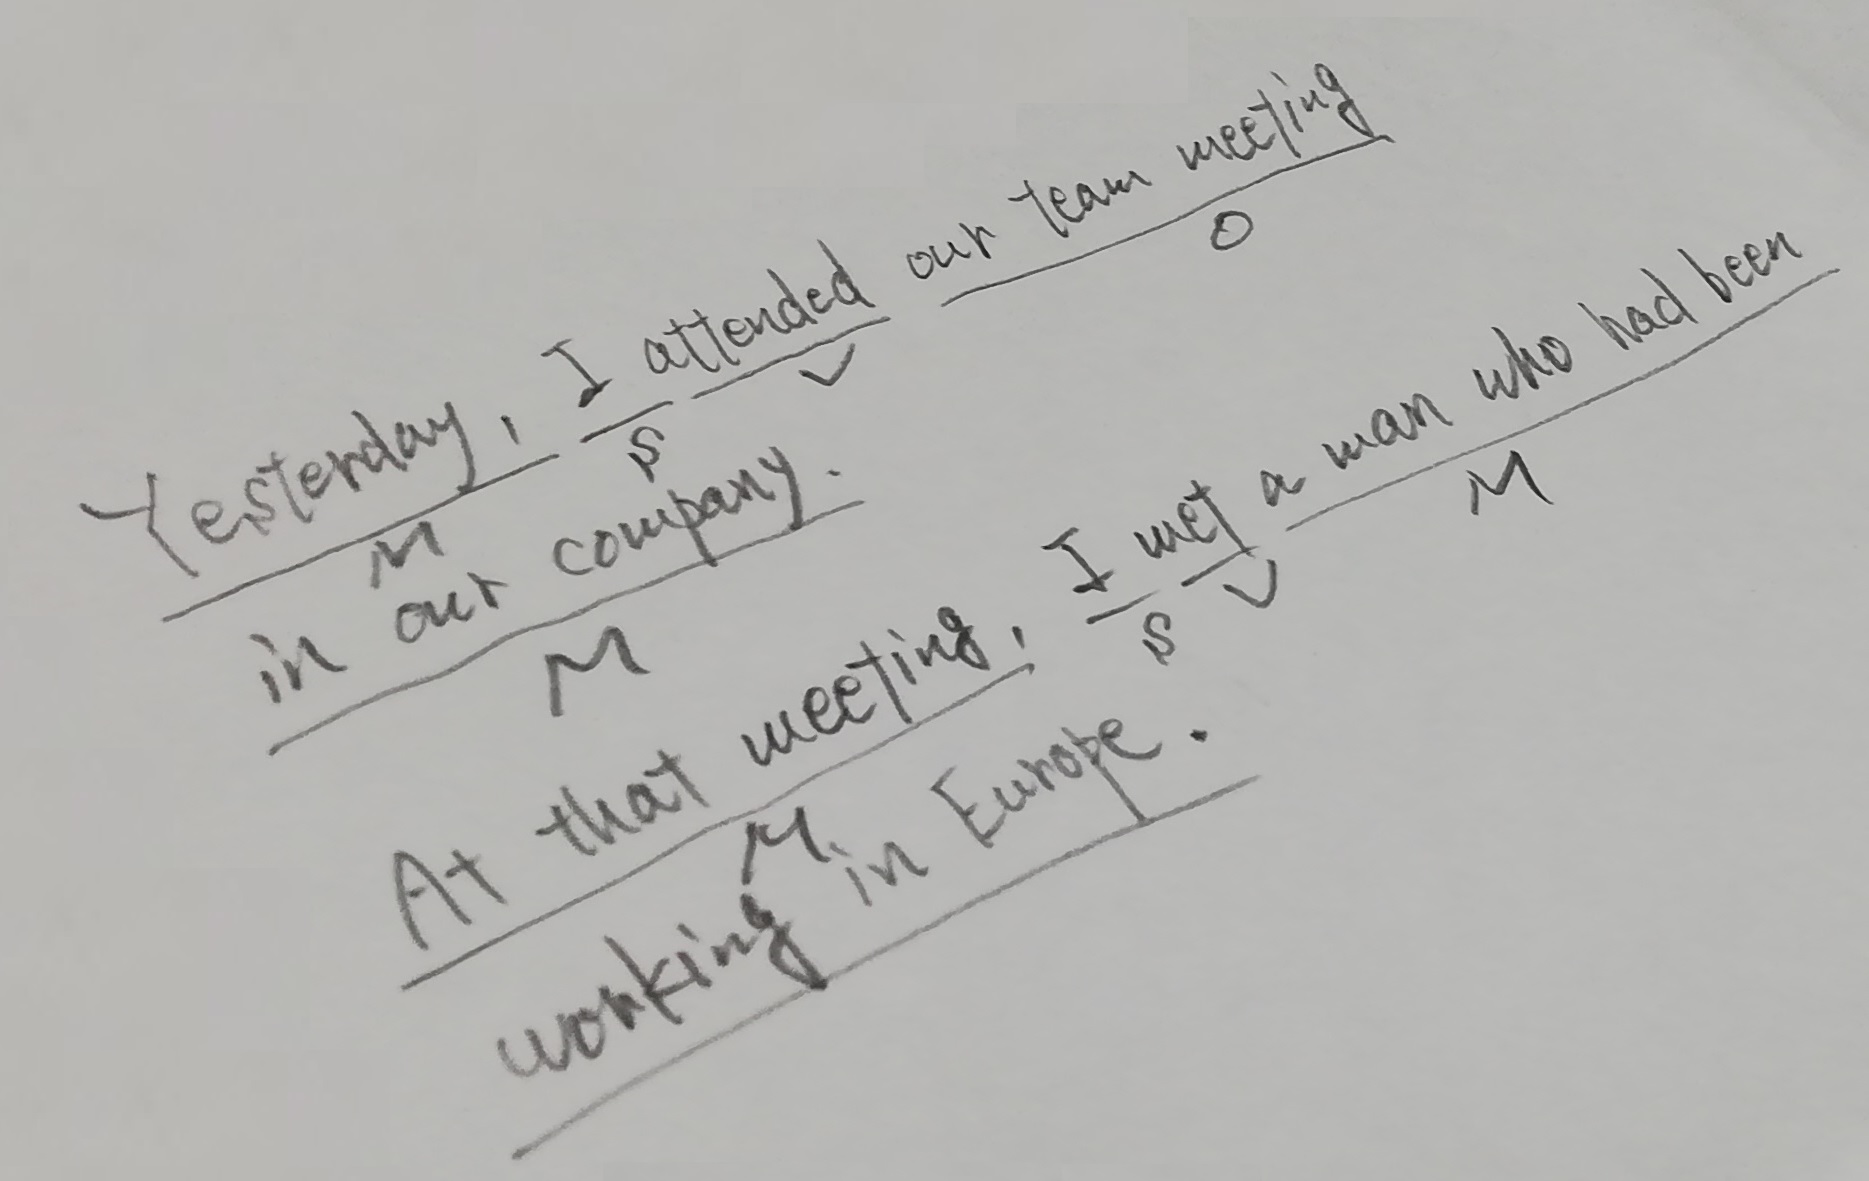 Yesterday, I attended our team meeting
M S V O
in our company.
M
At that meeting, I met a man who had been
M S V M
working in Europe.